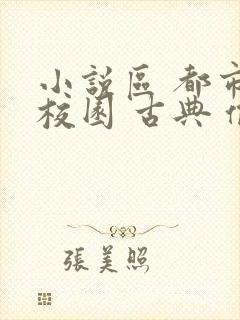 小說區 都市
校園 古典
張美照